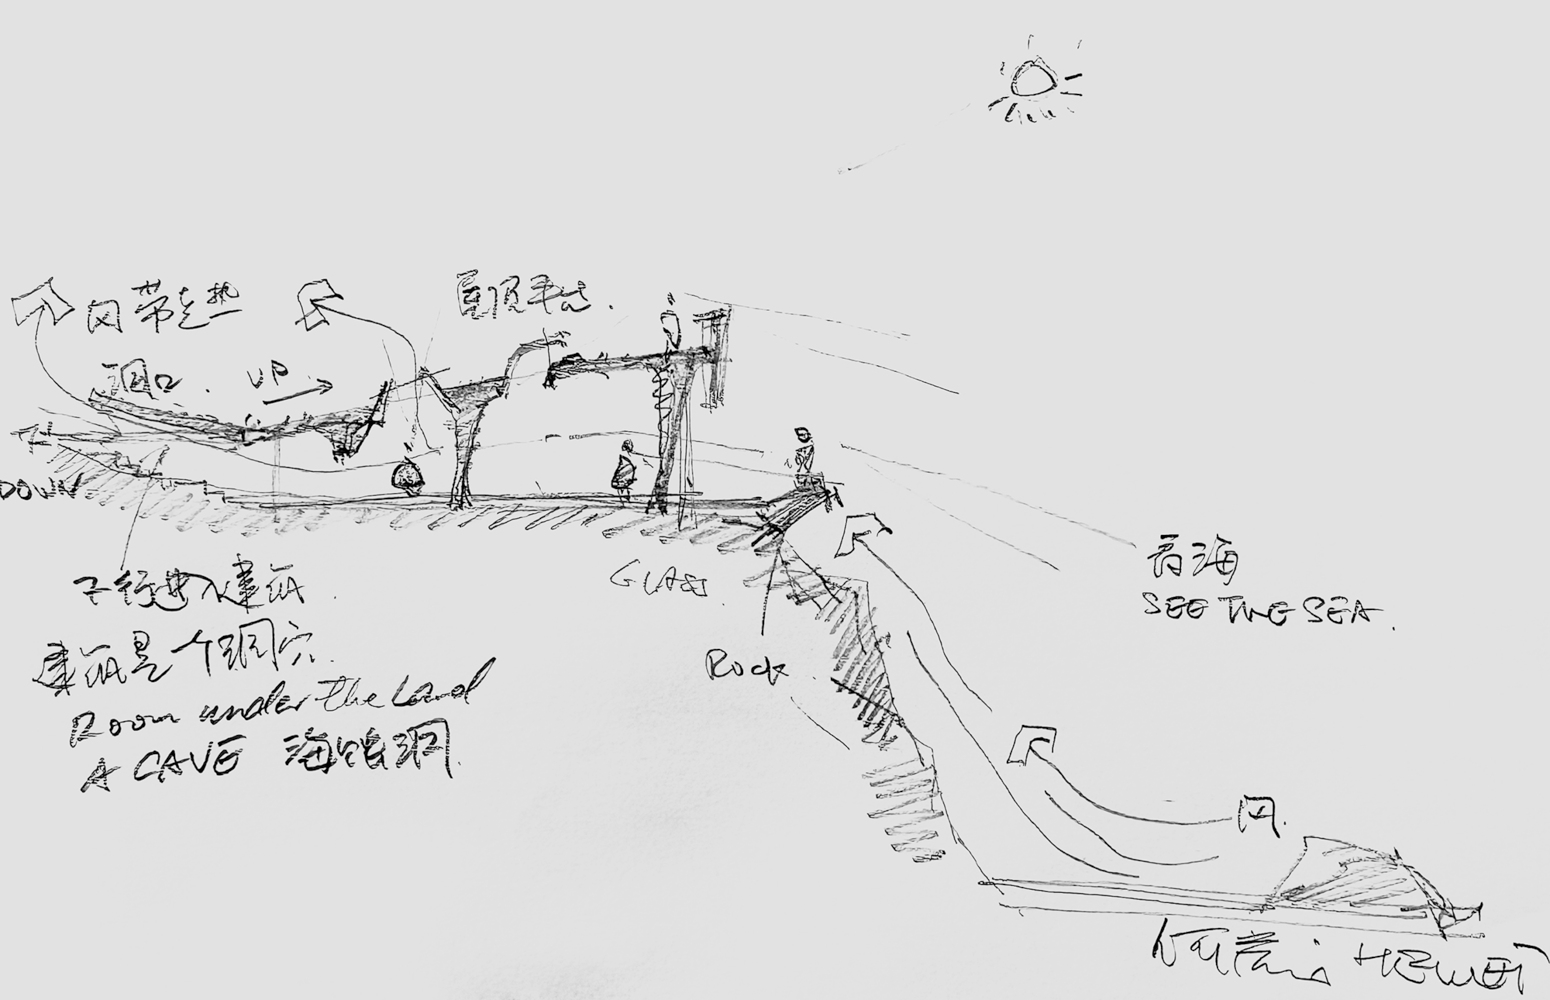 风带走热
屋顶平台.
洞口. UP
DOWN
下行进入建筑.
建筑是一个洞穴.
Room under the Land
A CAVE 海蚀洞.
GLASS.
Rock
看海
SEE THE SEA.
风.